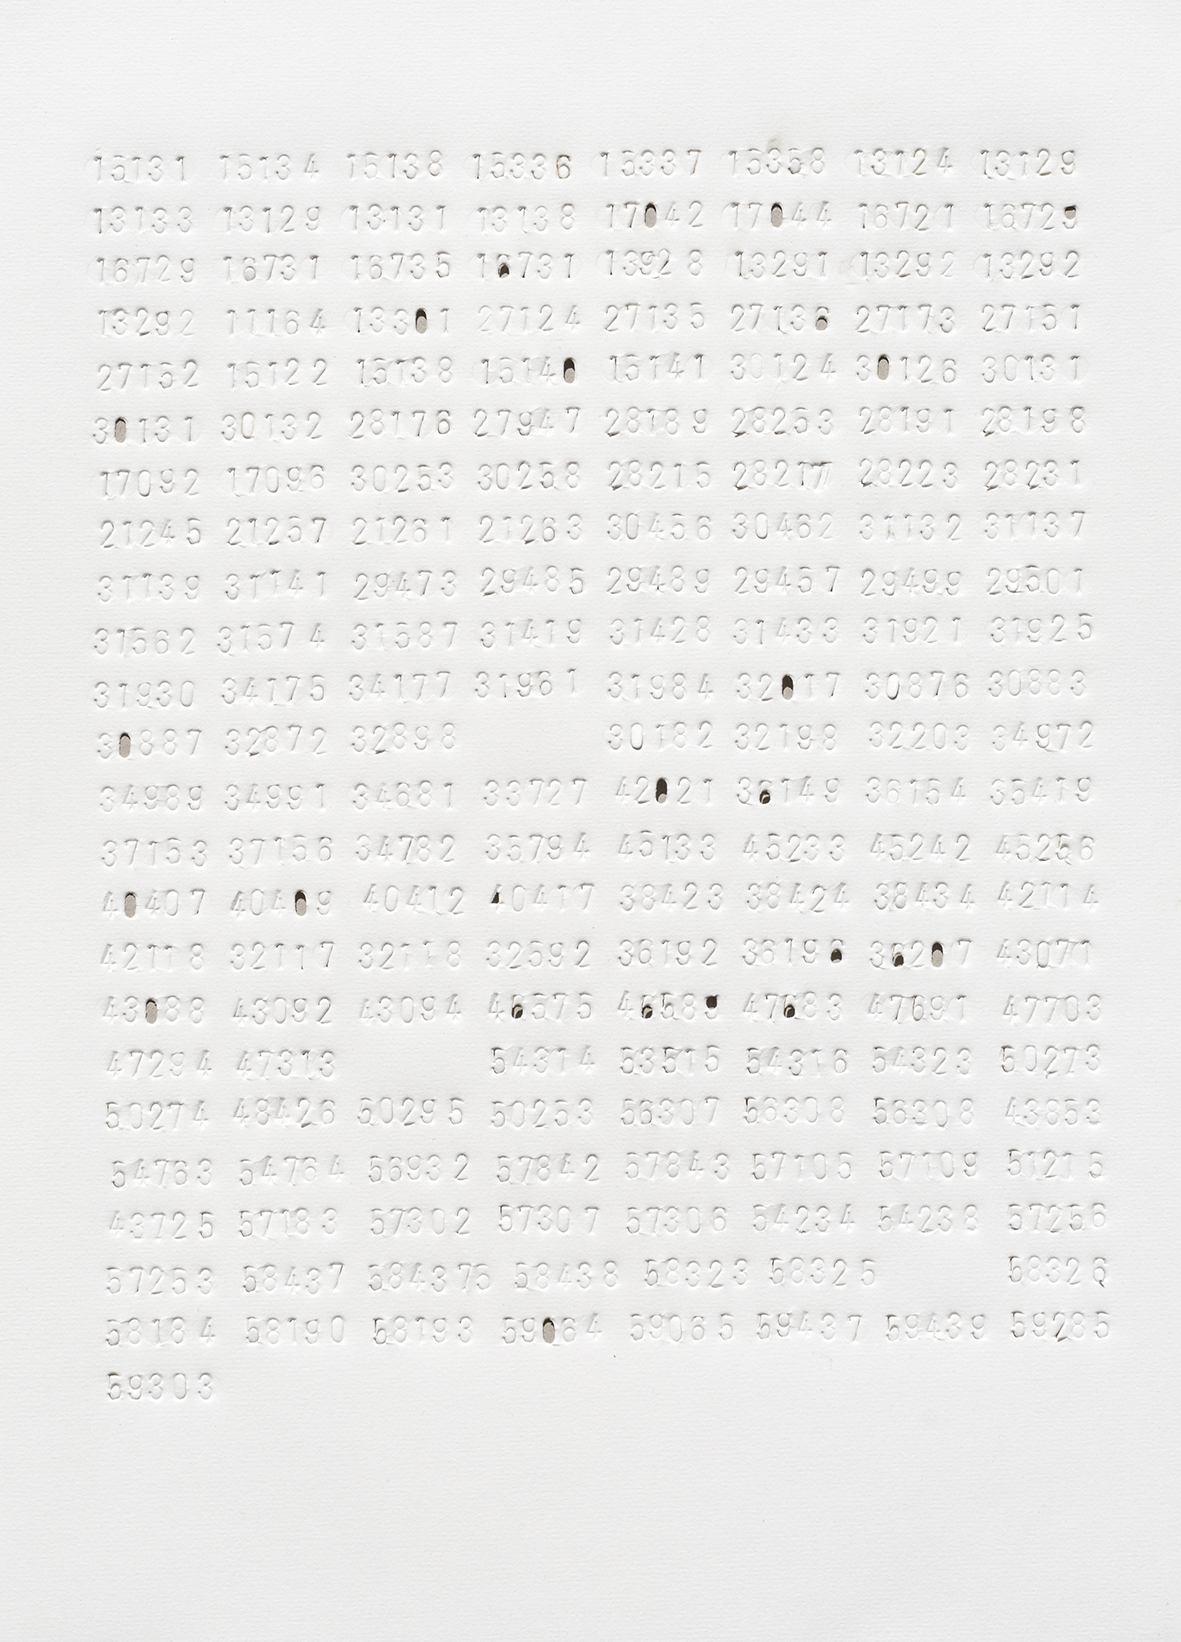 15131 15134 15138 15336 15337 15358 13124 13129
13133 13129 13131 13138 17042 17044 16721 16729
16729 16731 16735 16731 13928 13291 13292 13292
13292 11164 13301 27124 27135 27136 27173 27151
27152 15122 15138 15140 15141 30124 30126 30131
30131 30132 28176 27947 28189 28253 28191 28198
17092 17096 30253 30258 28215 28217 28223 28231
21245 21257 21261 21263 30456 30462 31132 31137
31139 31141 29473 29485 29489 29457 29499 29501
31562 31574 31587 31419 31428 31433 31921 31925
31930 34175 34177 31961 31984 32017 30876 30883
30887 32872 32898 30182 32198 32203 34972
34989 34991 34681 33727 42021 36149 36154 35419
37153 37156 34782 35794 45133 45233 45242 45256
40407 40409 40412 40417 38423 38424 38434 42114
42118 32117 32118 32592 36192 36196 36207 43071
43088 43092 43094 46575 46589 47683 47691 47703
47294 47313 54314 53515 54316 54323 50273
50274 48426 50295 50253 56307 56308 56308 43853
54763 54764 56932 57842 57843 57105 57109 51215
43725 57183 57302 57307 57306 54234 54238 57256
57253 58437 584375 58438 58323 58325 58326
58184 58190 58193 59064 59065 59437 59439 59285
59303